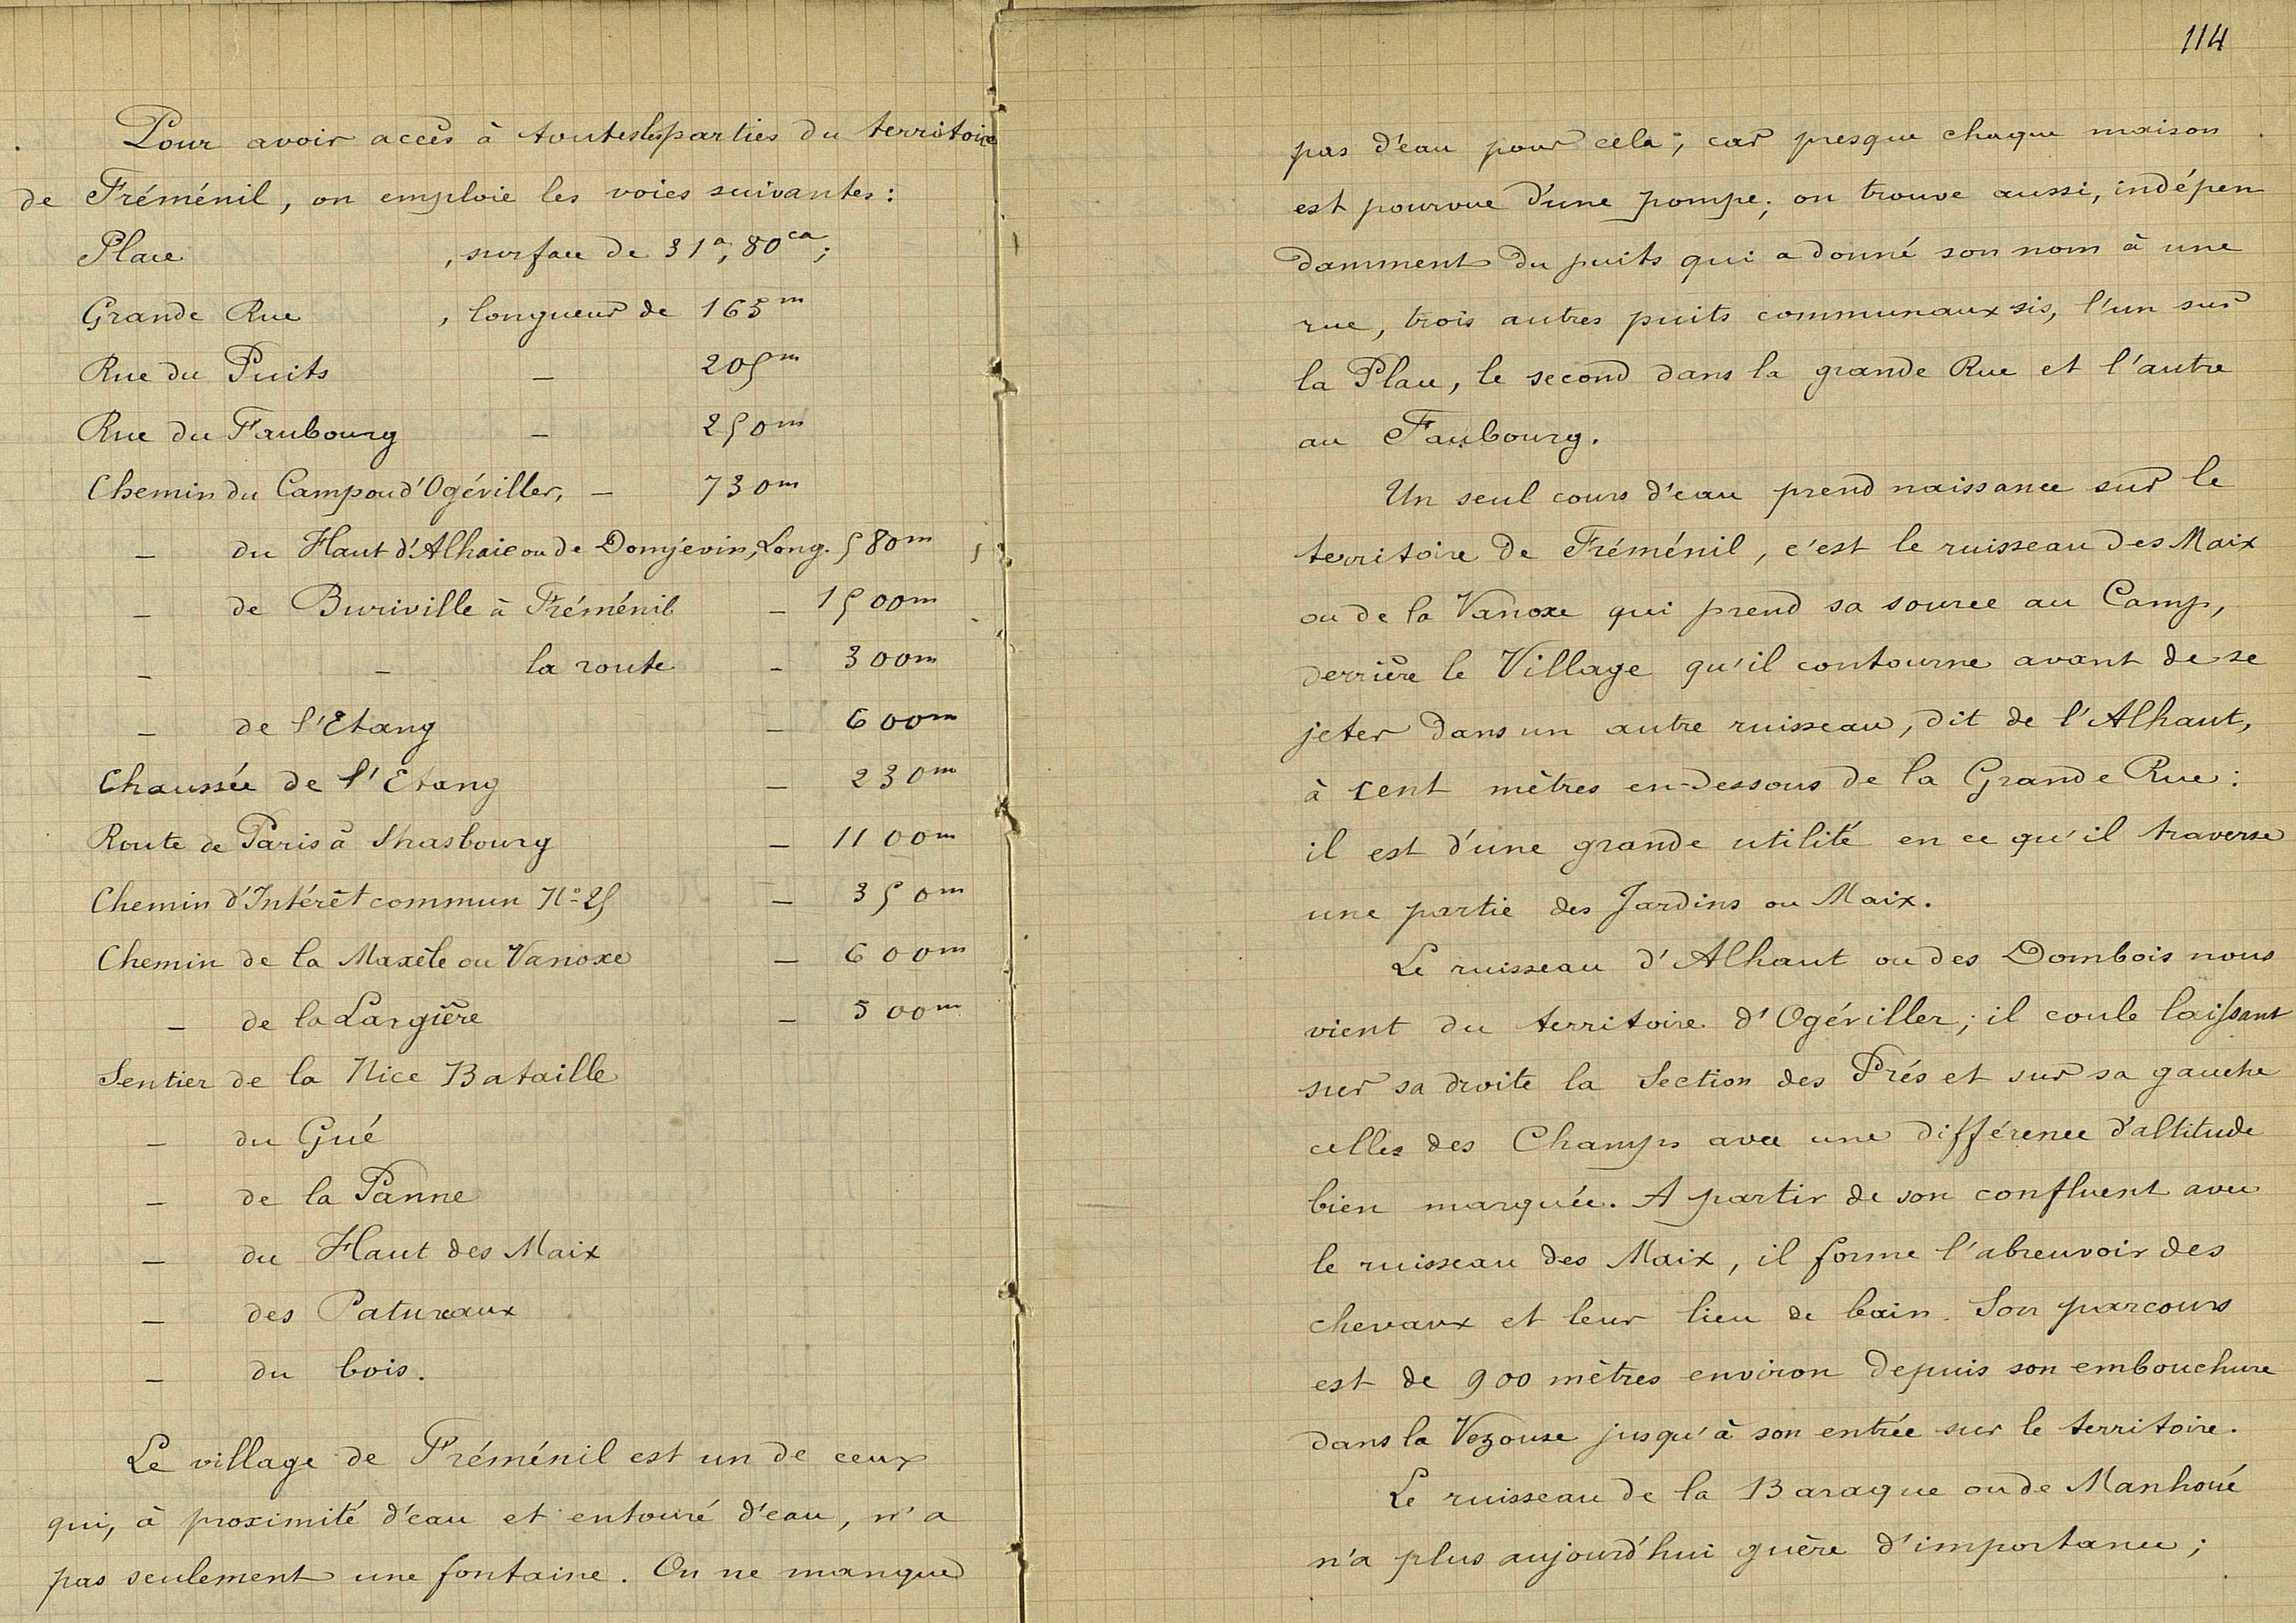 Pour avoir accès à toutes les parties du territoire
de Fréménil, on emploie les voies suivantes :
Place , surface de 31a, 80ca ;
Grande Rue , longueur de 165m
Rue du Puits — 205m
Rue du Faubourg — 250m
Chemin du Camp ou d'Ogéviller, — 730m
— du Haut d'Alhaie ou de Domjevin, Long. 580m ,
— de Buriville à Fréménil — 1500m
— — la route — 300m
— de l'Etang — 600m
Chaussée de l'Etang — 230m
Route de Paris à Strasbourg — 1100m
Chemin d'Intérêt commun N° 25 — 350m
Chemin de la Maxèle ou Vanoxe — 600m
— de la Largière — 500m
Sentier de la Nice Bataille
— du Gué
— de la Panne
— du Haut des Maix
— des Patureaux
— du bois.
Le village de Fréménil est un de ceux
qui, à proximité d'eau et entouré d'eau, n'a
pas seulement une fontaine. On ne manque
114
pas d'eau pour cela ; car presque chaque maison
est pourvue d'une pompe ; on trouve aussi, indépen
damment du puits qui a donné son nom à une
rue, trois autres puits communaux sis, l'un sur
la Place, le second dans la grande Rue et l'autre
au Faubourg.
Un seul cours d'eau prend naissance sur le
territoire de Fréménil, c'est le ruisseau des Maix
ou de la Vanoxe qui prend sa source au Camp,
derrière le Village qu'il contourne avant de se
jeter dans un autre ruisseau, dit de l'Alhaut,
à cent mètres en-dessous de la Grande Rue :
il est d'une grande utilité en ce qu'il traverse
une partie des Jardins ou Maix.
Le ruisseau d'Alhaut ou des Dombois nous
vient du territoire d'Ogéviller ; il coule laissant
sur sa droite la Section des Prés et sur sa gauche
celles des Champs avec une différence d'altitude
bien marquée. A partir de son confluent avec
le ruisseau des Maix, il forme l'abreuvoir des
chevaux et leur lieu de bain. Son parcours
est de 900 mètres environ depuis son embouchure
dans la Vezouse jusqu'à son entrée sur le territoire.
Le ruisseau de la Baraque ou de Manhoué
n'a plus aujourd'hui guère d'importance ;